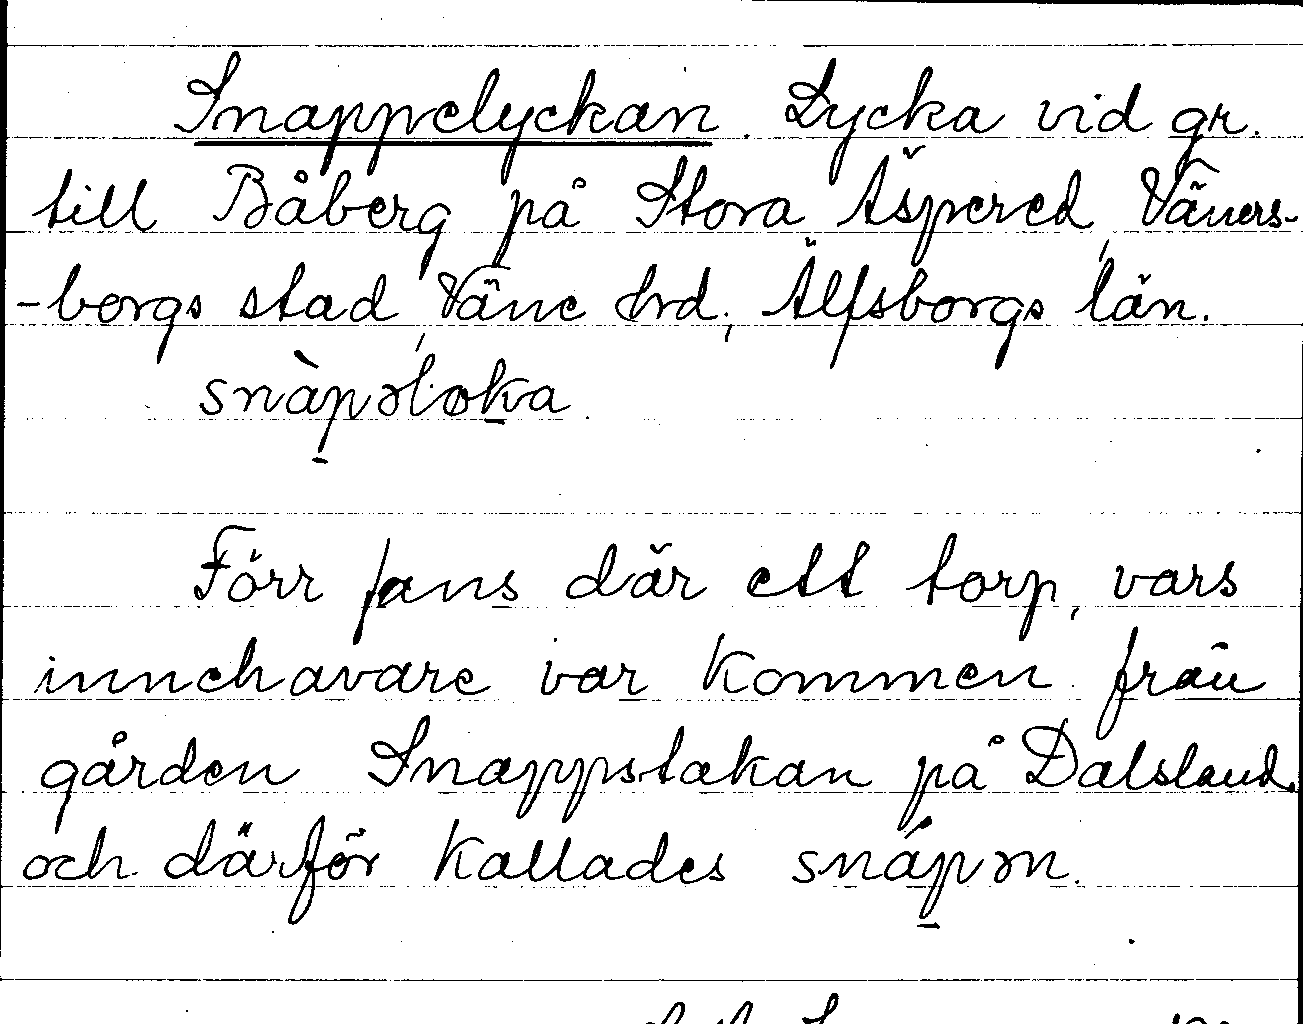 Snappelyckan. Lycka vid gr.
till Båberg på Stora Äspered, Väners-
-borgs stad, Väne hrd, Älfsborgs län.
snàpəloka
Förr fans där ett torp, vars
innehavare var kommen från
gården Snappstakan på Dalsland
och därför kallades snápən.